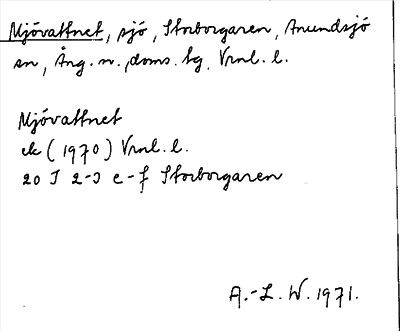 Mjövattnet, sjö, Storborgaren, Anundsjö
sn, Ång. n. doms. tg. Vrnl. l.
Mjövattnet
ek (1970) Vrnl. l.
20 J 2-3 e-f Storborgaren
A.-L. W. 1971.